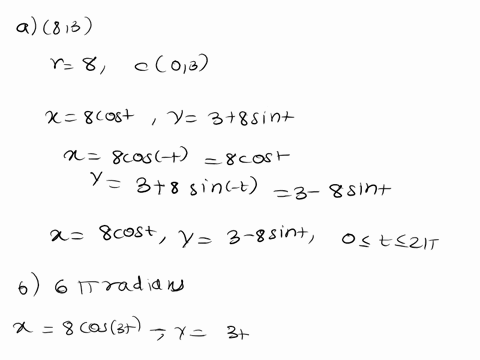 a) (8,3)
r = 8, c (0,3)
x = 8cost, y = 3+8sint
x = 8cos(-t) = 8cost
y = 3+8 sin(-t) = 3- 8sint
x = 8cost, y = 3-8sint, 0 ≤ t ≤ 2π
b) 6 π radians
x = 8 cos(3t), y = 3+